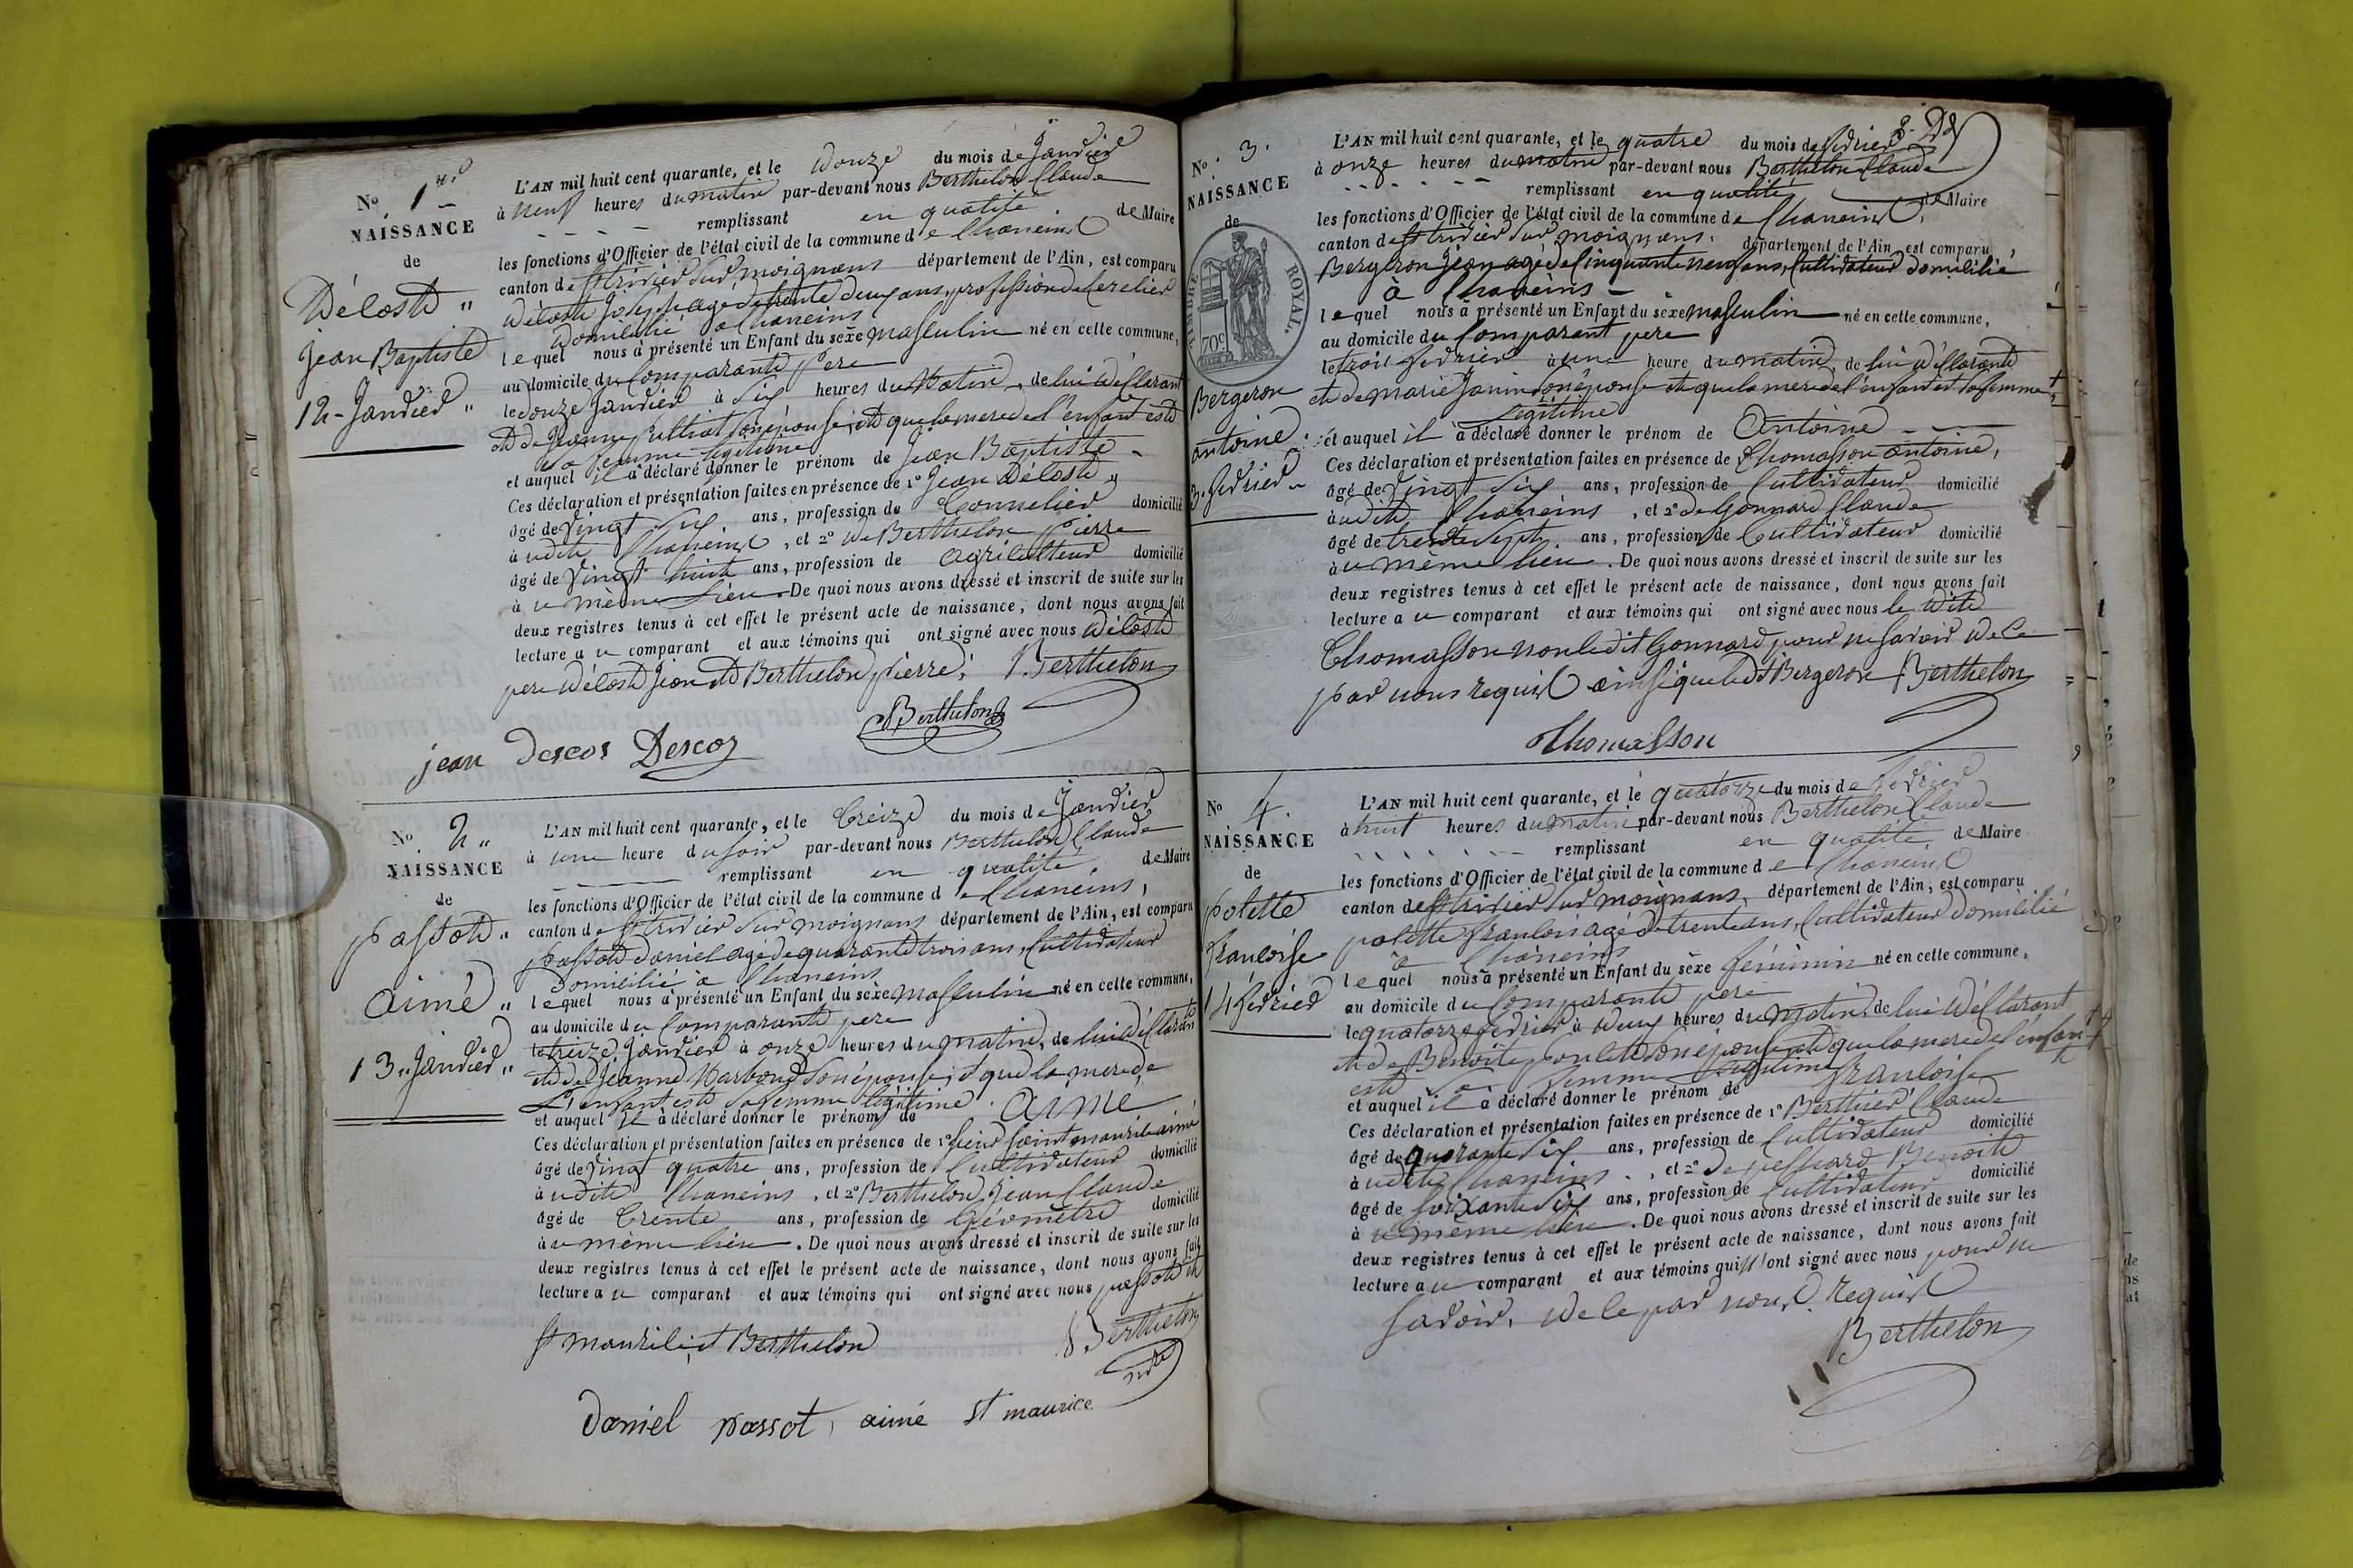 No. 1er
NAISSANCE
de
Délost "
Jean Baptiste
12 - Janvier "
L'AN mil huit cent quarante, et le douze du mois de Janvier
à neuf heures du matin par-devant nous Berthelon Claude
remplissant en qualité de Maire
les fonctions d'Officier de l'état civil de la commune de Chaneins
canton de St trivier sur moignans département de l'Ain, est comparu
Délost Joseph agé de trente deux ans, profession de
domicilié a Chaneins
lequel nous a présenté un Enfant du sèxe masculin né en cette commune,
au domicile du Comparant père
le douze Janvier à Six heures du Matin, de lui déclarant
et de Jeanne Sulliat son épouse, et que la mere de l'enfant est
sa femme légitime
et auquel il a déclaré donner le prénom de Jean Baptiste
Ces déclaration et présentation faites en présence de 1o Jean Délost
âgé de Vingt Six ans, profession de Tonnelier domicilié
à udit Chaneins, et 2o de Berthelon Pierre
âgé de Vingt huit ans, profession de agriculteur domicilié
à u même Lieu. De quoi nous avons dressé et inscrit de suite sur les
deux registres tenus à cet effet le présent acte de naissance, dont nous avons fait
lecture a u comparant et aux témoins qui ont signé avec nous Délost
pere Délost Jean et Berthelon pierre. Berthelon
Berthelon
jean Descos Descos
No. 2 "
NAISSANCE
de
passot "
Aimé "
13 " Janvier "
L'AN mil huit cent quarante, et le treize du mois de Janvier
à une heure du soir par-devant nous Berthelon Claude
remplissant en qualité de Maire
les fonctions d'Officier de l'état civil de la commune de Chaneins,
canton de St trivier sur moignans département de l'Ain, est comparu
passot daniel agé de quarante trois ans, Cultivateur
domicilié à Chaneins
lequel nous a présenté un Enfant du sèxe masculin né en cette commune,
au domicile du Comparant pere
le treize Janvier à onze heures du matin, de lui déclarant
et de Jeanne Narboux son épouse, et que la mere de
L'enfant est sa femme légitime.
et auquel il a déclaré donner le prénom de aimé
Ces déclaration et présentation faites en présence de 1o Sieur Saint maurice aimé
âgé de Vingt quatre ans, profession de Cultivateur domicilié
à udit Chaneins, et 2o Berthelon Jean Claude
âgé de trente ans, profession de Géomètre domicilié
à u même lieu. De quoi nous avons dressé et inscrit de suite sur les
deux registres tenus à cet effet le présent acte de naissance, dont nous avons fait
lecture a u comparant et aux témoins qui ont signé avec nous passot
St maurice et Berthelon Berthelon
daniel passot, aimé St maurice
No. 3.
NAISSANCE
de
TIMBRE ROYAL.
70c
Bergeron
antoine.
3. fevrier
L'AN mil huit cent quarante, et le quatre du mois de fevrier
à onze heures du matin par-devant nous Berthelon Claude
remplissant en qualité de Maire
les fonctions d'Officier de l'état civil de la commune de Chaneins,
canton de St trivier sur moignans. département de l'Ain, est comparu,
Bergeron Jean agé de Cinquante neuf ans, Cultivateur domicilié
à Chaneins
lequel nous a présenté un Enfant du sèxe masculin né en cette commune,
au domicile du Comparant pere
le trois fevrier à une heure du matin, de lui déclarant
et de marie Janin son épouse et que la mere de l'enfant est sa femme
legitime
et auquel il a déclaré donner le prénom de Antoine
Ces déclaration et présentation faites en présence de Thomasson antoine,
âgé de Vingt Six ans, profession de Cultivateur domicilié
à udit Chaneins, et 2o de Gonnard Claude
âgé de trente Sept ans, profession de Cultivateur domicilié
à u même lieu. De quoi nous avons dressé et inscrit de suite sur les
deux registres tenus à cet effet le présent acte de naissance, dont nous avons fait
lecture a u comparant et aux témoins qui ont signé avec nous le dit
Thomasson non ledit Gonnard pour ne savoir de ce
par nous requis ainsi que ledt Bergeron Berthelon
Thomasson
No 4.
NAISSANCE
de
polette
francoise
14 fevrier
L'AN mil huit cent quarante, et le quatorze du mois de fevrier
à huit heures du matin par-devant nous Berthelon Claude
remplissant en qualité de Maire
les fonctions d'Officier de l'état civil de la commune de Chaneins
canton de St trivier sur moignans, département de l'Ain, est comparu
polette francois agé de trente ans, Cultivateur domicilié
à Chaneins
lequel nous a présenté un Enfant du sèxe féminin né en cette commune,
au domicile du Comparant pere
le quatorze fevrier à deux heures du matin, de lui déclarant
et de Benoite son épouse et que la mere de l'enfant
est sa femme legitime
et auquel il a déclaré donner le prénom de francoise
Ces déclaration et présentation faites en présence de 1o Berthier Claude
âgé de quarante Six ans, profession de Cultivateur domicilié
à udit Chaneins, et 2o de Benoit
âgé de Soixante Six ans, profession de Cultivateur domicilié
à u même lieu. De quoi nous avons dressé et inscrit de suite sur les
deux registres tenus à cet effet le présent acte de naissance, dont nous avons fait
lecture a u comparant et aux témoins qui ont signé avec nous pour ne
savoir, de ce par nous requis
Berthelon